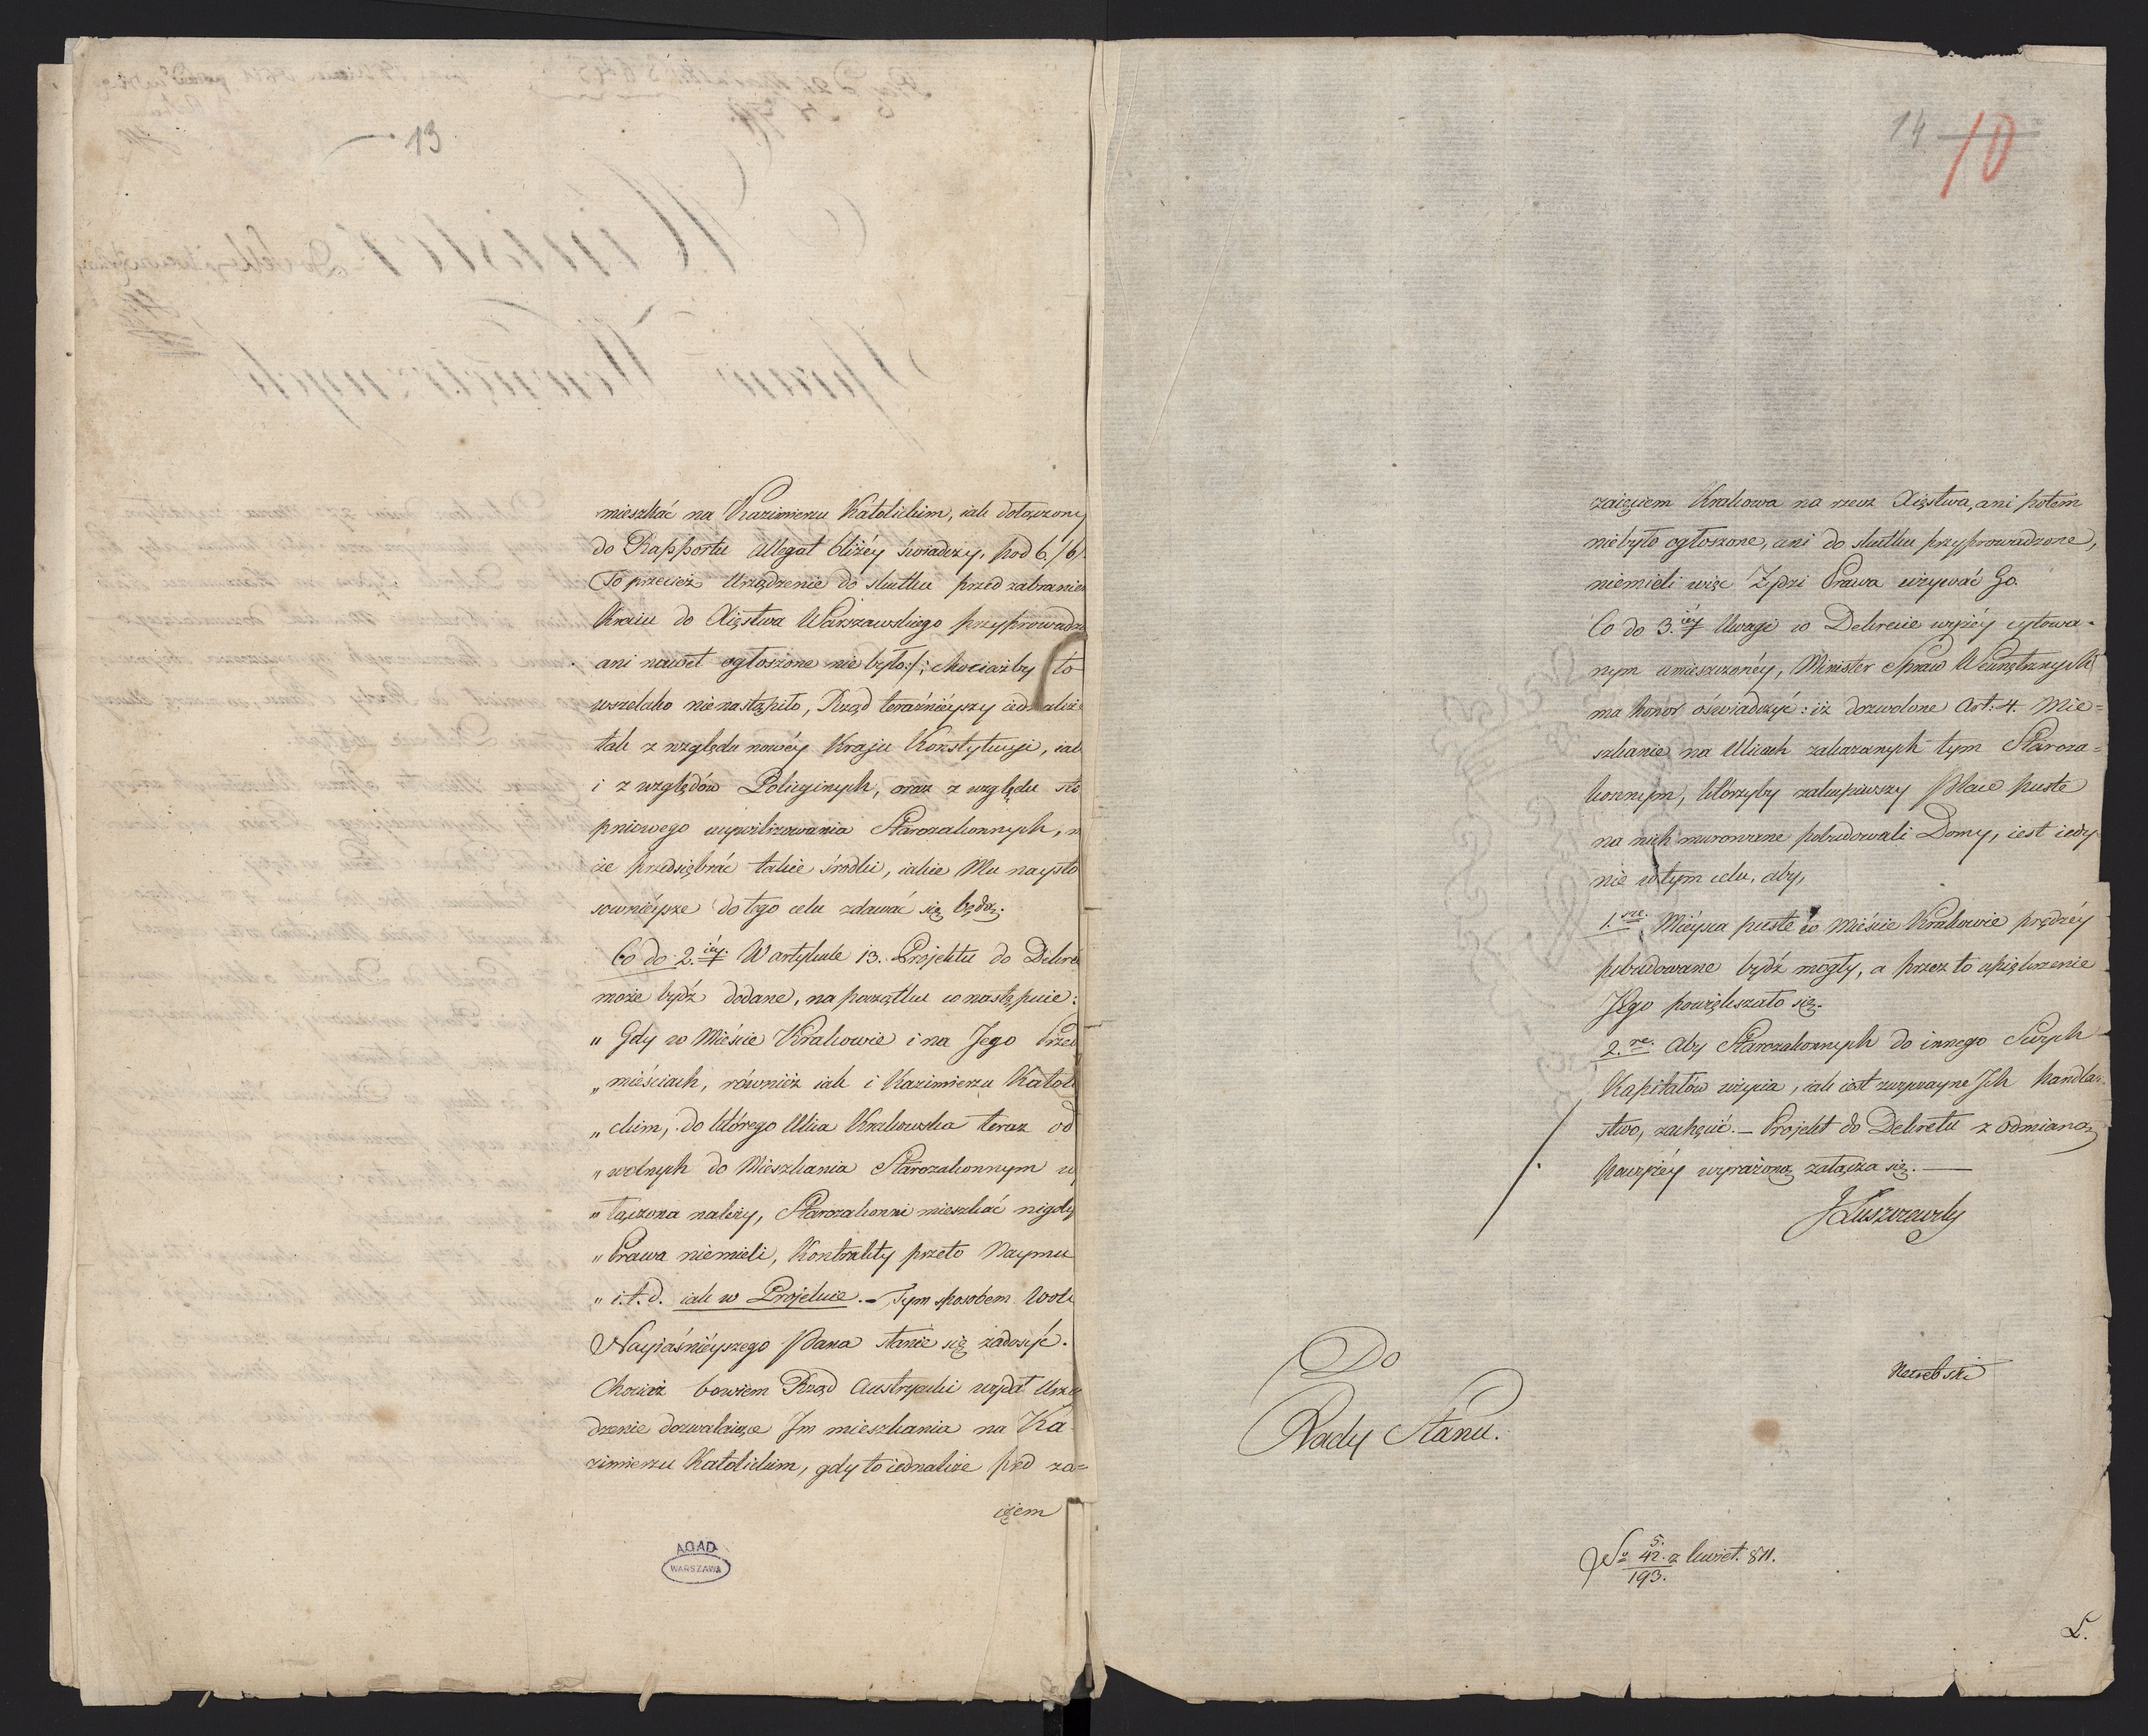 13
mieszkać na Kazimierzu Katolickim, iak dołączony
do Rapportu Allegat bliżéy świadczy. pod 6./6/.
To przecież Urządzenie do skutku przed zabraniem
Kraiu do Xięstwa Warszawskiego przyprowadzo
ani nawet ogłoszone nie było /: chociażby to
wszelako nienastąpiło, Rząd teraźnieyszy iednakże
tak z względu nowéy Kraju Konstytucyi, iak
i z względów Policyinych, oraz z względu sto
pniowego ucywilizowania Starozakonnych, m
że przedsiębrać takie środki, iakie Mu naysto
sownieysze do tego celu zdawać się będą.
Co do 2.iéy W artykule 13. Projektu do Dekre
może bydź dodane, na początku co następuie:
„ Gdy w Mieście Krakowie i na Jego Przed
„ mieściach, również iak i Kazimierzu Katol
„ ckim, do którego Ulica Krakowska teraz od
„ wolnych do Mieszkania Starozakonnym wy
„ łączona należy, Starozakonni mieszkać nigdy
„ Prawa niemieli, Kontrakty przeto Naymu
„ i.t.d. iak w Projekcie. – Tym sposobem Woli
Nayiaśnieyszego Pana stanie się zadosyć.
Chociaż bowiem Rząd Austryacki wydał Urzą
dzenie dozwalaiące Im mieszkania na Ka
zimierzu Katolickim, gdy to iednakże przed za=
ięciem
AGAD
WARSZAWA
14 10
zaięciem Krakowa na rzecz Xięstwa, ani potem
niebyło ogłoszone, ani do skutku przyprowadzone,
niemieli więc Żydzi Prawa używać Go.
Co do 3.iéy Uwagi w Dekrecie wyżéy cytowa=
nym umieszczonéy, Minister Spraw Wewnętrznych
ma honor oświadczyć: iż dozwolone Art: 4. Mie=
szkanie na Ulicach zakazanych tym Staroza=
konnym, którzyby zakupiwszy Place puste
na nich murowane pobudowali Domy, iest iedy
nie w tym celu, aby,
1.sze Mieysca puste w Mieście Krakowie prędzéy
pobudowane bydź mogły, a przez to upiększenie
Jego powiększało się.
2.re Aby Starozakonnych do innego Swych
Kapitałów użycia, iak iest zwyczayne Ich handlar
stwo, zachęcić. – Projekt do Dekretu z odmianą
powyżéy wyrażoną załącza się. —
JŁuszczewski
Do
Rady Stanu.
No 5. 42. z kwiet. 811.
193.
L.